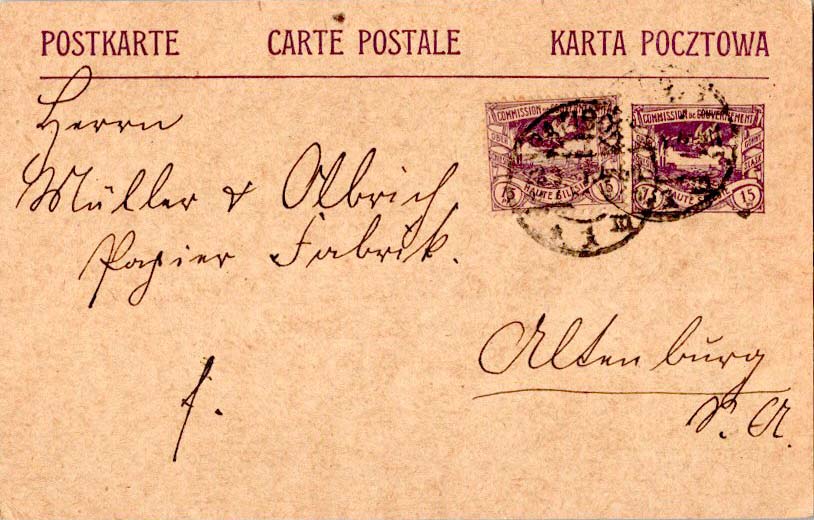 POSTKARTE CARTE POSTALE KARTA POCZTOWA
Herrn
Müller & Olbrich
Papier Fabrik.
Altenburg
S. A.
f.
COMMISSION DE GOUVERNEMENT
HAUTE SILÉSIE
15 15
COMMISSION DE GOUVERNEMENT
HAUTE SILÉSIE
15 15